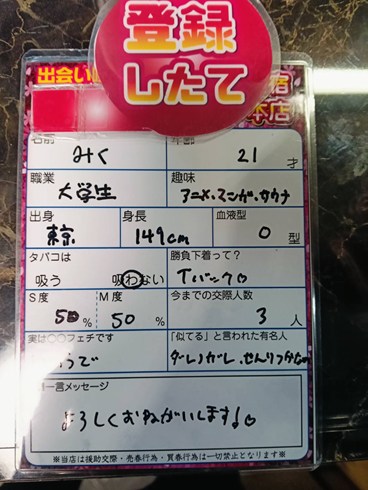 登録
したて
出会い
宿
本店
名前
みく
年齢
21
才
職業
大学生
趣味
アニメ、マンガ、サウナ
出身
東京
身長
149cm
血液型
O 型
タバコは
吸う 吸わない
勝負下着って?
Tバック♡
S度
50 %
M度
50 %
今までの交際人数
3 人
実は○○フェチです
うで
「似てる」と言われた有名人
ダレノガレ、せんりつかなの
一言メッセージ
よろしくおねがいします♡
※当店は援助交際・売春行為・買春行為は一切禁止となります※